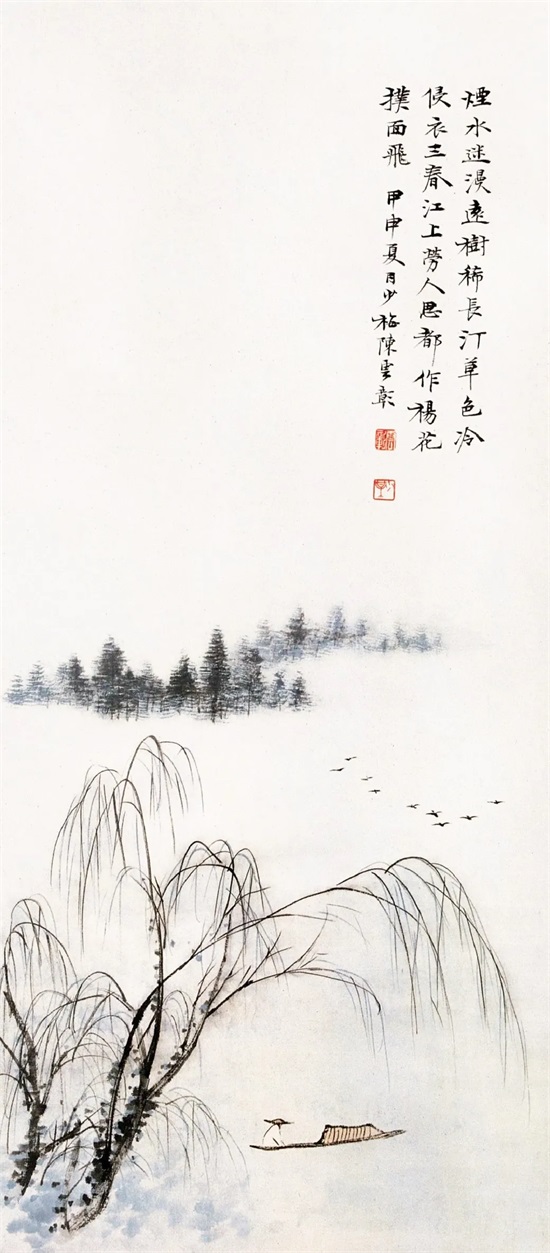 煙水迷漫遠樹稀長汀草色冷
侵衣三春江上勞人思都作楊花
撲面飛 甲申夏月少梅陳雲彰